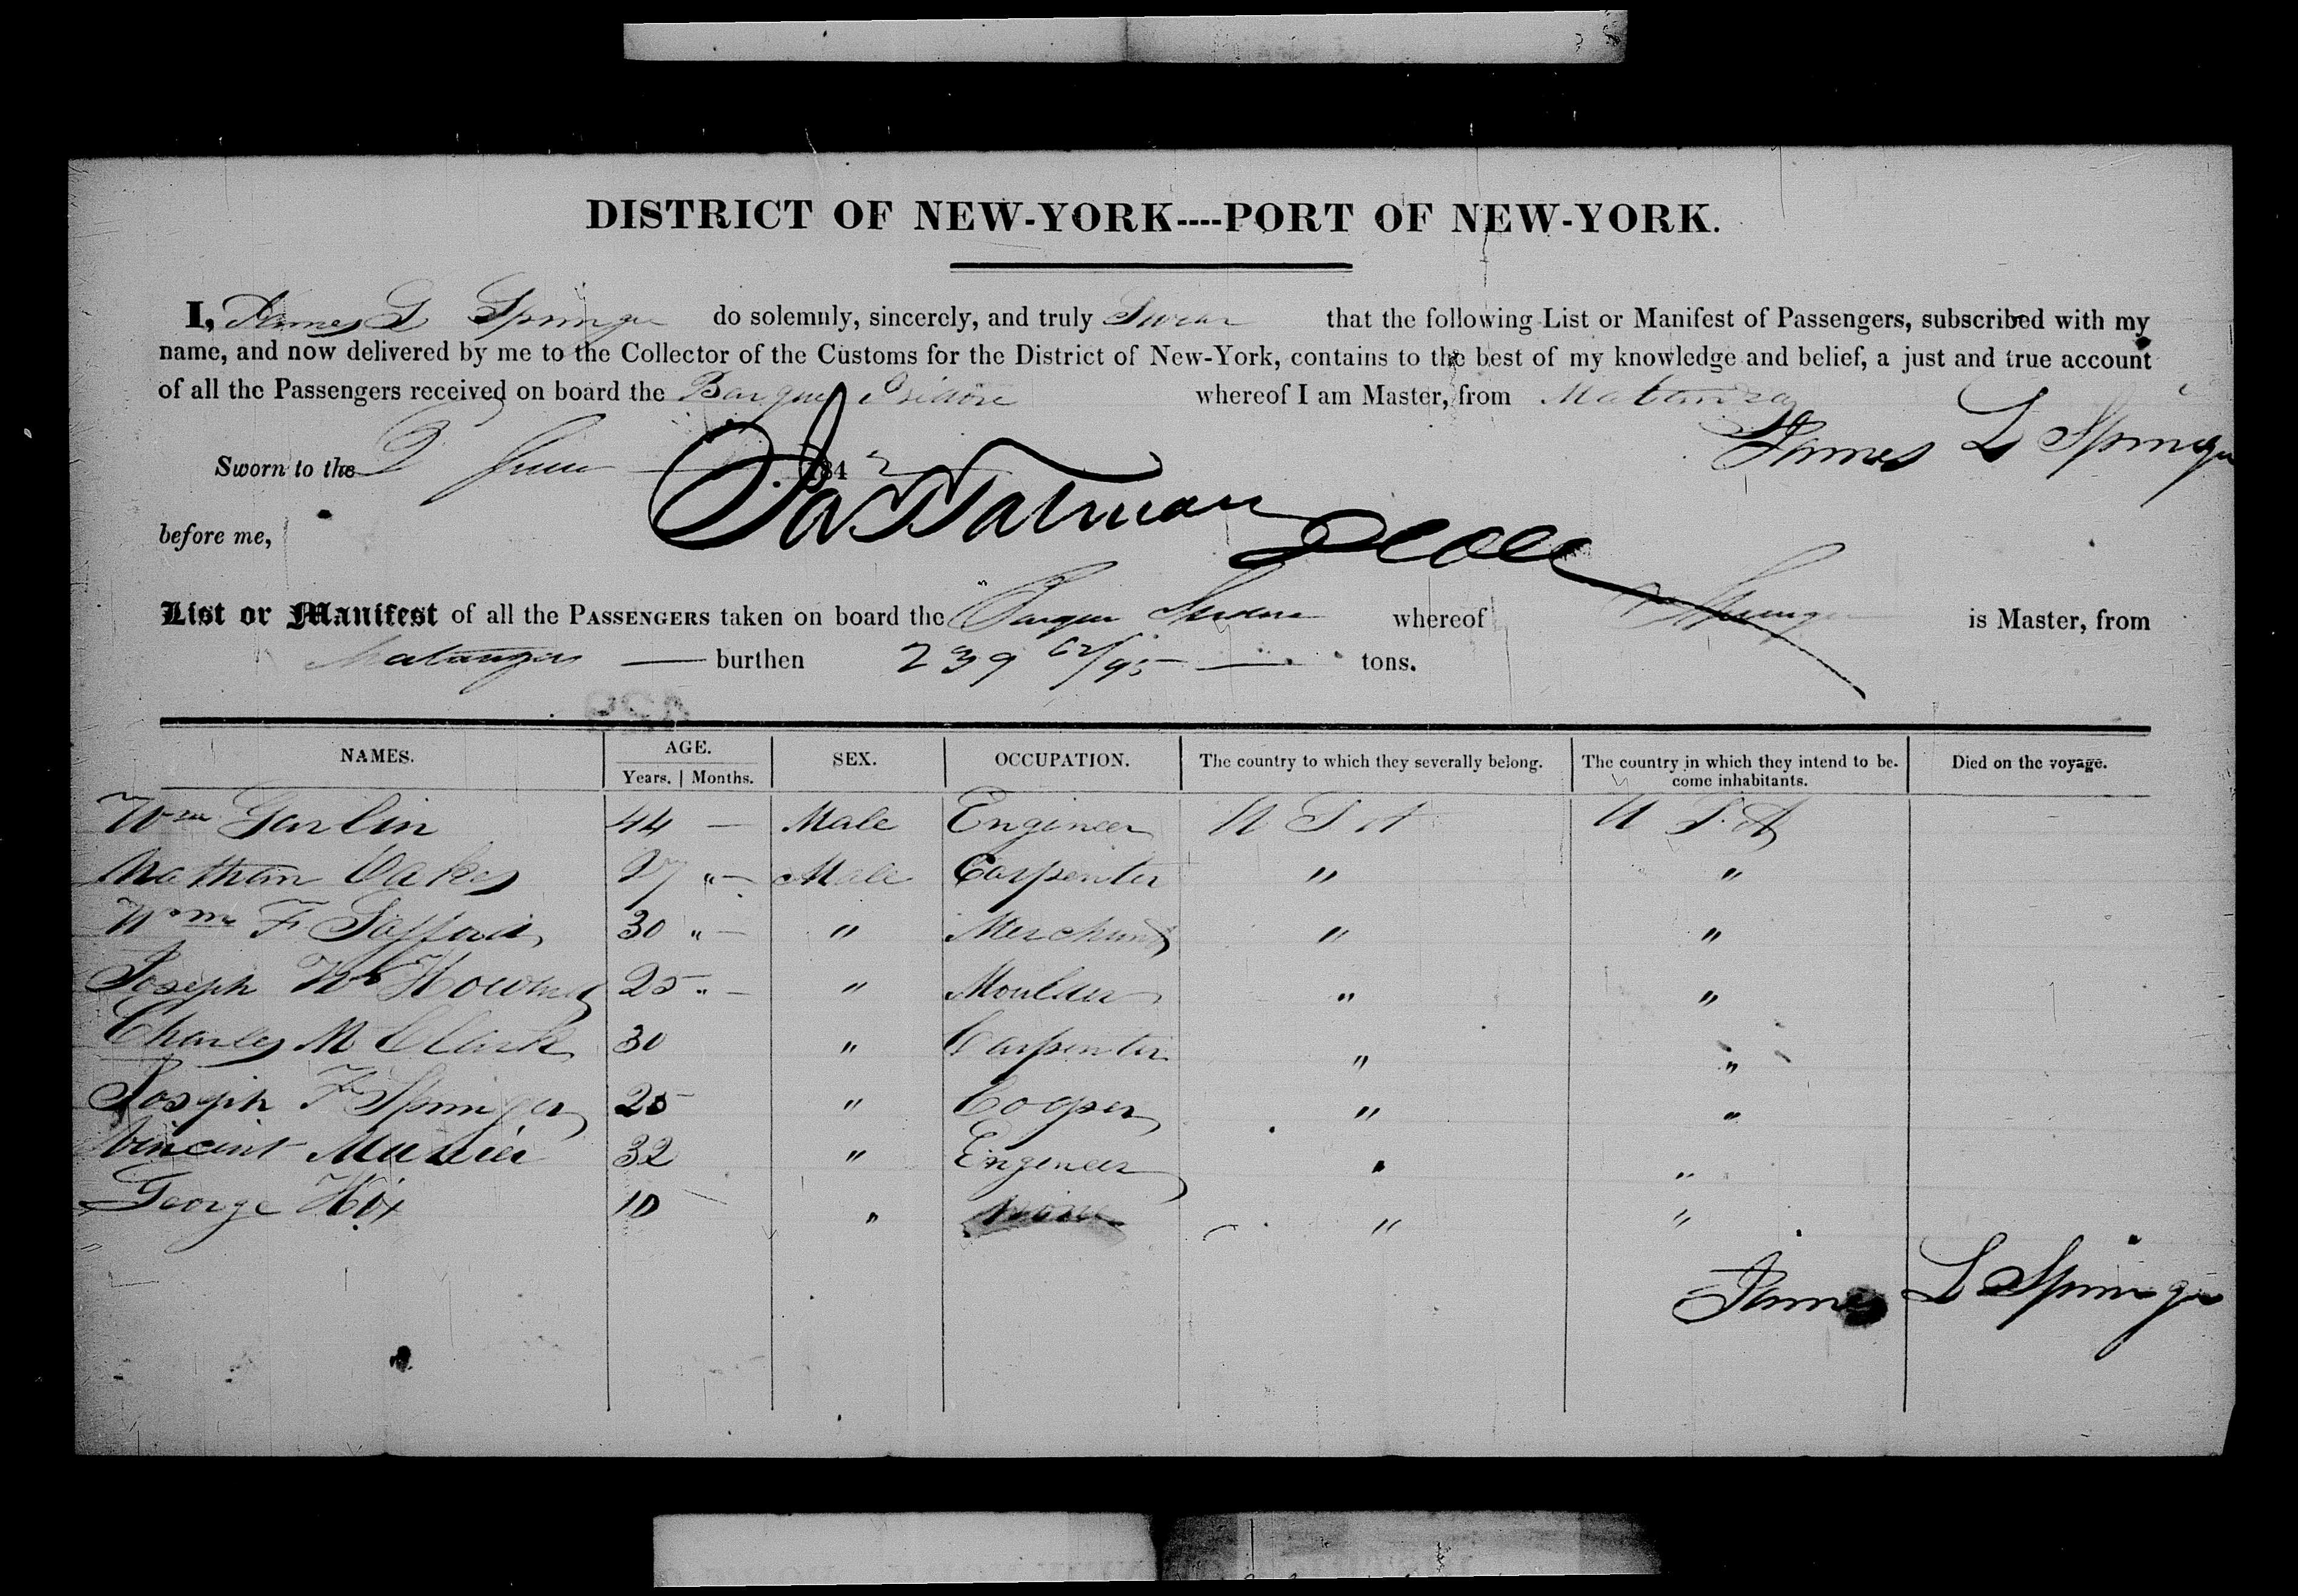 DISTRICT OF NEW-YORK----PORT OF NEW-YORK.
I, James L Springer do solemnly, sincerely, and truly Swear that the following List or Manifest of Passengers, subscribed with my
name, and now delivered by me to the Collector of the Customs for the District of New-York, contains to the best of my knowledge and belief, a just and true account
of all the Passengers received on board the Barque Isidore whereof I am Master, from Matanzas
James L Springer
Sworn to the 2 June 1842
before me,
List or Manifest of all the PASSENGERS taken on board the Barque whereof Springer is Master, from
Matanzas — burthen 239 62/95 — tons.
NAMES. AGE. SEX. OCCUPATION. The country to which they severally belong. The country in which they intend to be- Died on the voyage.
Years. Months. come inhabitants.
Wm Garlin 44 — Male Engineer U S A U S. A
Nathan Oakes 27 " — Male Carpenter " "
Wm F Safford 30 " — " Merchant " "
Joseph W 25 " — " Moulder " "
Charles M Clark 30 " Carpenter " "
Joseph F Springer 25 " Cooper " "
Vincent 32 " Engineer " "
George Hix 10 " None " "
James L Springer